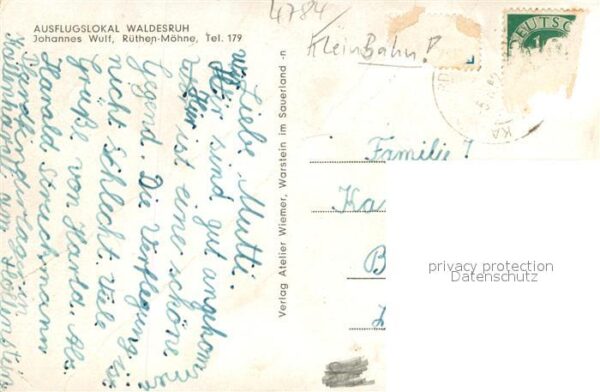 AUSFLUGSLOKAL WALDESRUH
Johannes Wulf, Rüthen-Möhne, Tel. 179
4784
KleinBahn!
DEUTSC
Liebe Mutti.
wir sind gut angkomm
Hir ist eine schöne
Gegend. Die Verflegung is
nicht Schlecht. Viele
Grüße von Harld. Abs.
Harald Streichmann
Kallenhardt am Hohlenstein
Verlag Atelier Wiemer, Warstein im Sauerland -n
Familie
Ka
B
privacy protection
Datenschutz